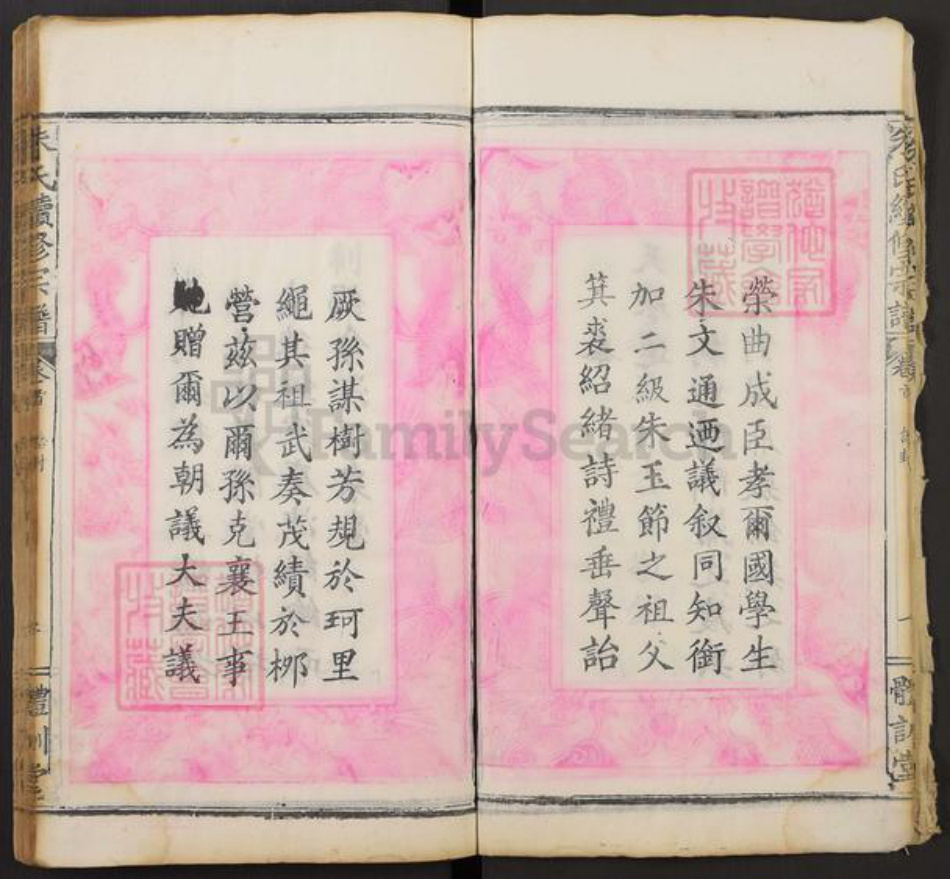 榮曲成臣孝爾國學生
朱文通迺議叙同知銜
加二級朱玉節之祖父
箕裘紹緒詩禮垂聲詒
厥孫謀樹芳規於珂里
繩其祖武奏茂績於梛
營茲以爾孫克襄王事
貤贈爾為朝議大夫議
朱氏續修宗譜
卷首
禮訓堂
FamilySearch